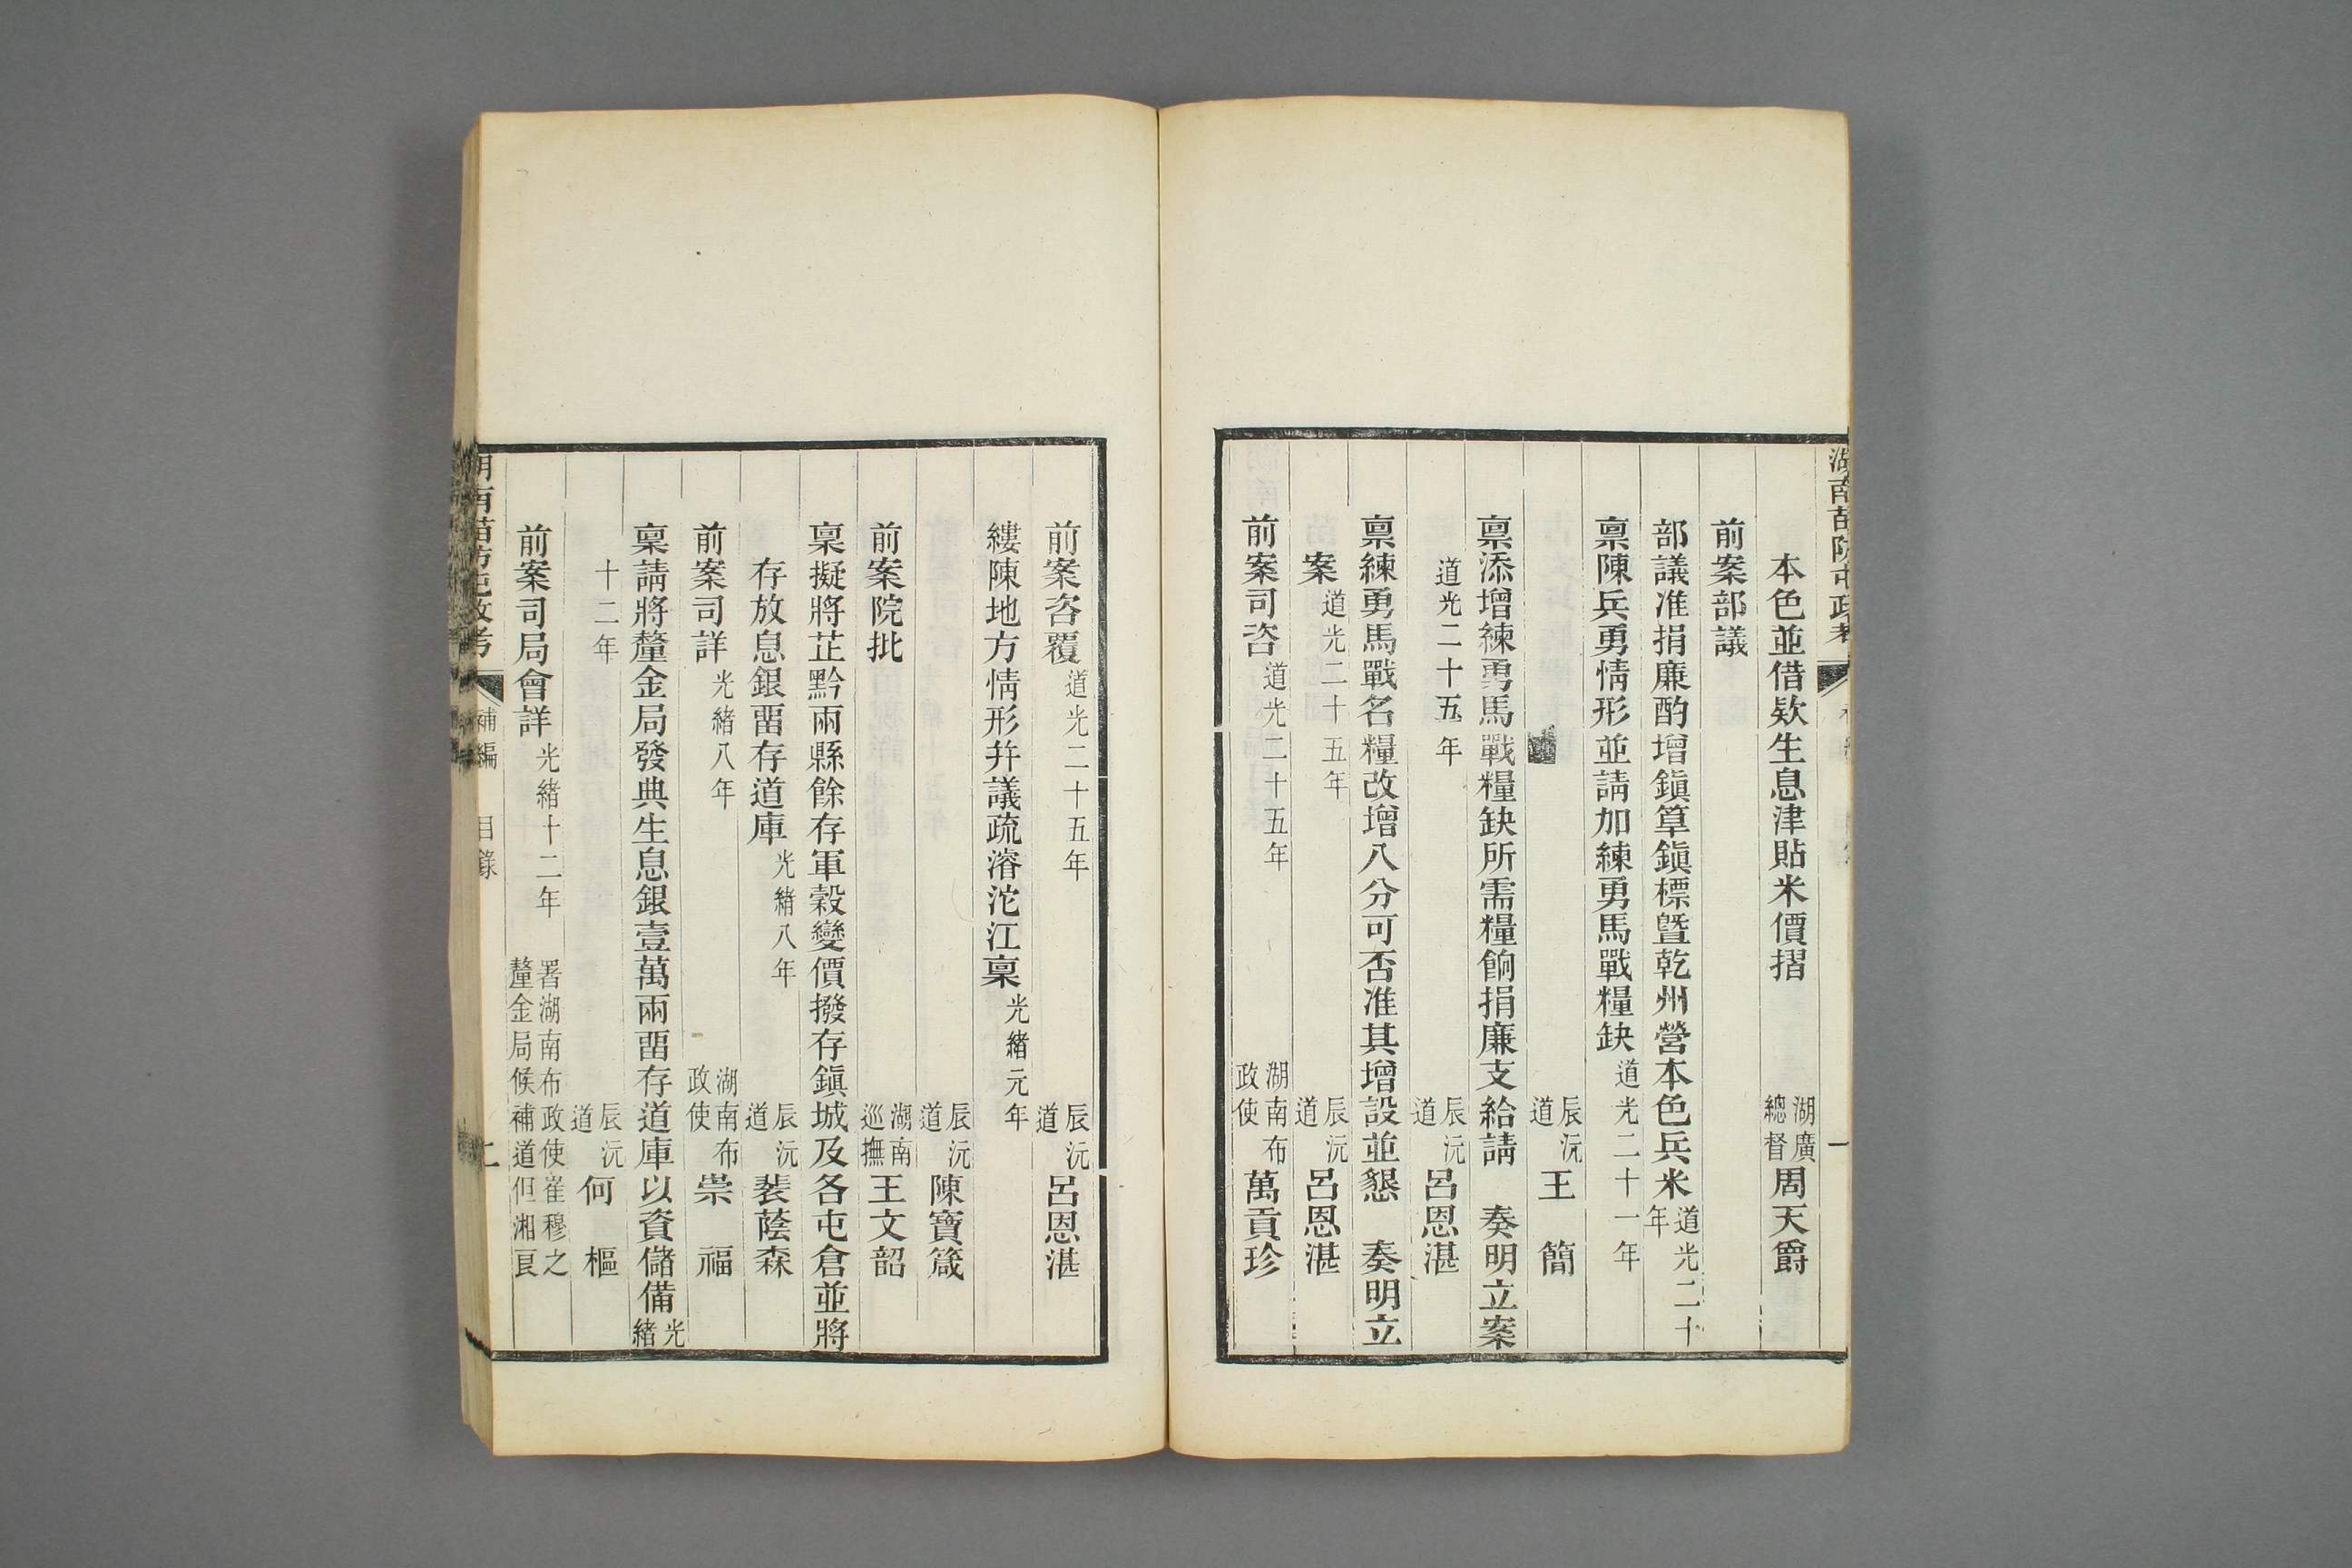 湖南苗防屯政考
本色並借欵生息津貼米價摺 湖廣總督周天爵
前案部議
部議准捐廉酌增鎭筸鎭標曁乾州營本色兵米道光二十年
稟陳兵勇情形並請加練勇馬戰糧缺道光二十一年
辰沅道王 簡
稟添增練勇馬戰糧缺所需糧餉捐廉支給請 奏明立案
道光二十五年 辰沅道呂恩湛
稟練勇馬戰名糧改增八分可否准其增設並懇 奏明立
案道光二十五年 辰沅道呂恩湛
前案司咨道光二十五年 湖南布政使萬貢珍
前案咨覆道光二十五年 辰沅道呂恩湛
縷陳地方情形幷議疏濬沱江稟光緒元年
辰沅道陳寶箴
前案院批 湖南巡撫王文韶
稟擬將芷黔兩縣餘存軍穀變價撥存鎭城及各屯倉並將
存放息銀畱存道庫光緒八年 辰沅道裴蔭森
前案司詳光緒八年 湖南布政使崇 福
稟請將釐金局發典生息銀壹萬兩畱存道庫以資儲備光緒
十二年 辰沅道何 樞
前案司局會詳光緒十二年 署湖南布政使崔穆之釐金局候補道但湘良
湖南苗防屯政考 補編 目錄 二